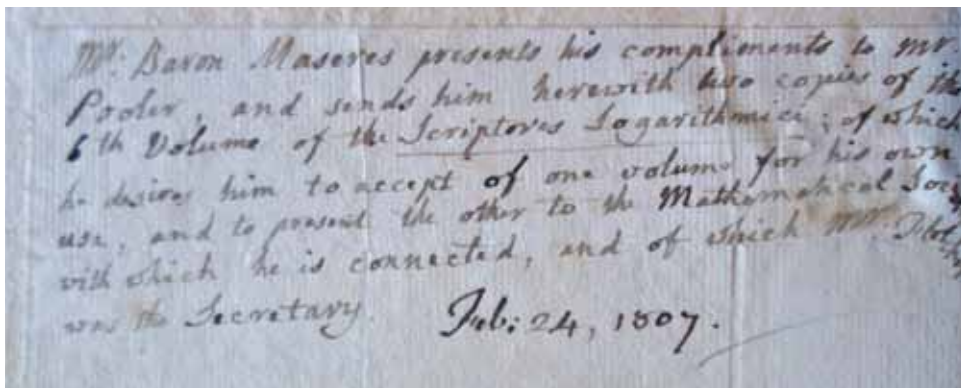 Mr. Baron Maseres presents his compliments to Mr.
Pooler, and sends him herewith two copies of the
6th Volume of the Scriptores Logarithmici; of which
he desires him to accept of one volume for his own
use, and to present the other to the Mathematical
with which he is connected, and of which Mr.
was the Secretary. Feb: 24, 1807.